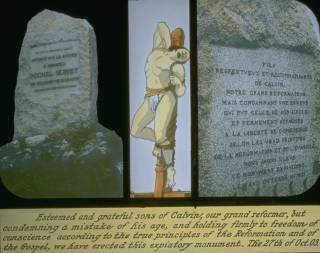 MICHEL SERVET
FILS
RESPECTUEUX ET RECONNAISSANTS
DE CALVIN,
NOTRE GRAND RÉFORMATEUR,
MAIS CONDAMNANT UNE ERREUR
QUI FUT CELLE DE SON SIÈCLE,
ET FERMEMENT ATTACHÉS
A LA LIBERTÉ DE CONSCIENCE,
SELON LES VRAIS PRINCIPES
DE LA RÉFORMATION ET DE L'ÉVANGILE
NOUS AVONS ÉLEVÉ
CE MONUMENT EXPIATOIRE
Esteemed and grateful sons of Calvin, our grand reformer, but
condemning a mistake of his age, and holding firmly to freedom of
conscience according to the true principles of the Reformation and of
the Gospel, we have erected this expiatory monument. The 27th of Oct. 03.